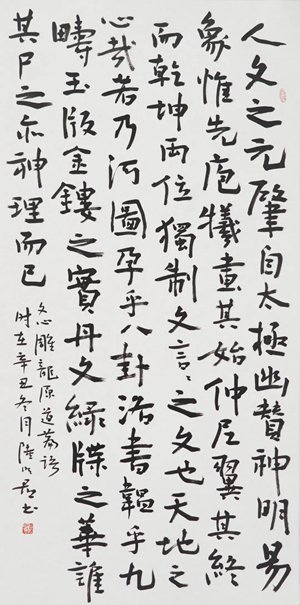 人文之元肇自太極幽贊神明易
象惟先庖犧畫其始仲尼翼其終
而乾坤兩位獨制文言〻之文也天地之
心哉若乃河圖孕乎八卦洛書韞乎九
疇玉版金鏤之實丹文綠牒之華誰
其尸之亦神理而已
文心雕龍原道篇語
时在辛丑冬月陸明君书